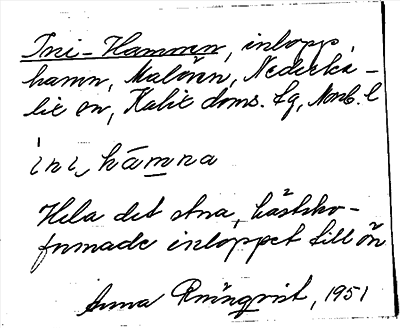 Ini-Hamnen, inlopp,
hamn, Malören, Nederka-
lix sn, Kalix doms. lg, Nonb. l
ini hamna
Hela det stora, hästsko-
formade inloppet till ön
Anna 1951